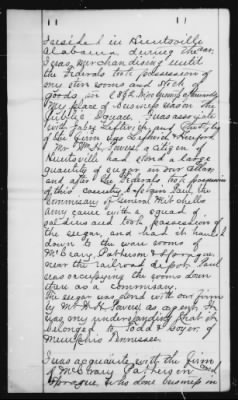 11 11
I resided in Huntsville
Alabama during the war.
I was merchandising until
the Federals took possession of
my store rooms and stock of
goods, in
My place of business was on the
Public Square. I was associate
with and the style of
the firm was
Mr. Wm H. a citizen of
Huntsville had stored a large
quantity of sugar in our cellar,
and after the Federals took possession
of this country, Captain the
Commissary of General Mitchells
Army came with a squad of
soldiers and took possession of
the sugar, and had it hauled
down to the ware rooms of
McCrary, Patterson & Sprague,
near the railroad depot. Paul
was occupying the rooms down
there as a commissary.
The sugar was stored with our firm
by Mr as agent. It
was my understanding that it
belonged to Todd & Boyer, of
Memphis Tennessee.
I was acquainted with the firm
of McCrary Patterson and
Sprague, who done business in